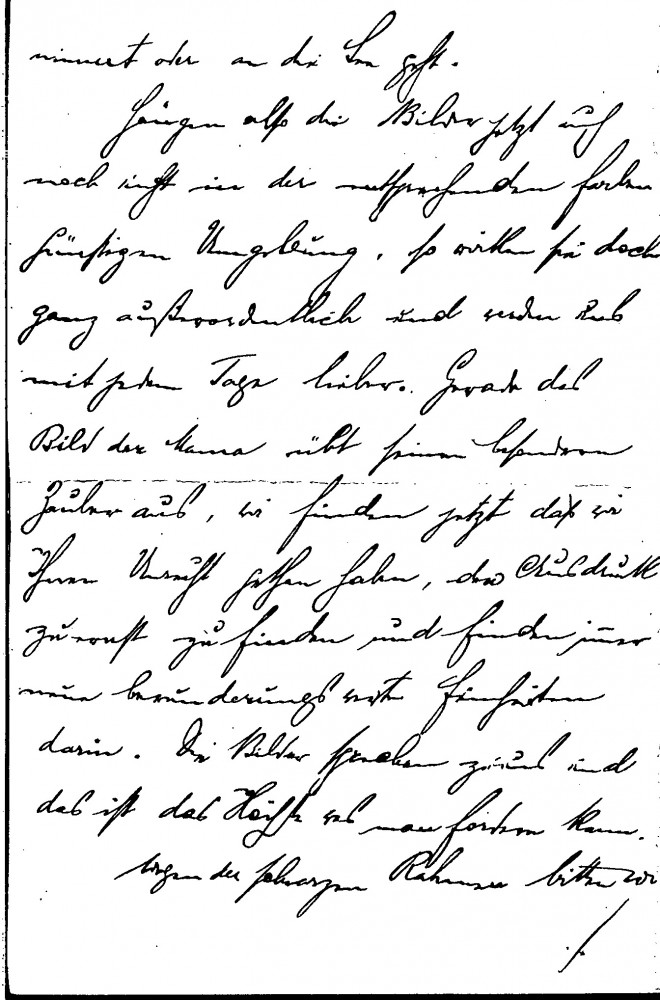 nimmt oder an die See geht.
Hängen also die Bilder jetzt auch
noch nicht in der entsprechenden farben
günstigen Umgebung, so wirken sie doch
ganz außerordentlich und werden uns
mit jedem Tage lieber. Gerade das
Bild der Mama übt seinen besonderen
Zauber aus, wir finden jetzt daß wir
Ihnen Unrecht gethan haben, den Ausdruck
zu ernst zu finden und finden im̅er
neue bewunderungswerte Feinheiten
darin. Die Bilder sprechen zu uns und
das ist das Höchste was man fordern kann.
Wegen der schwarzen Rahmen bitten wir
./.